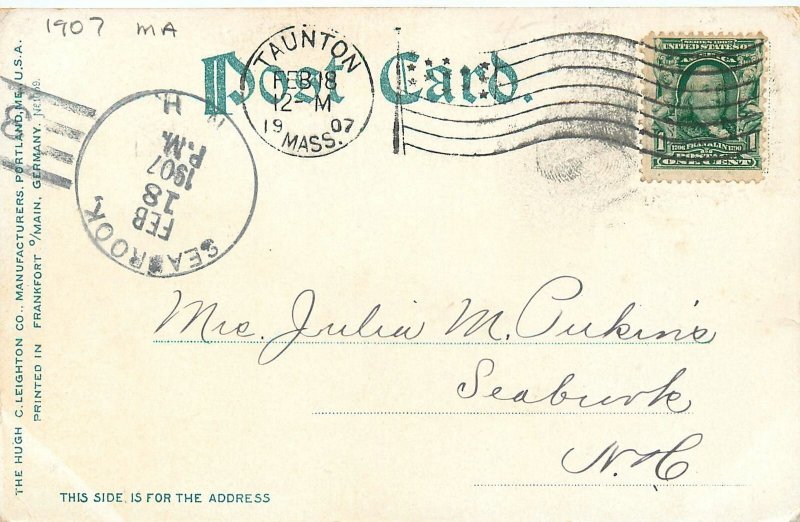 1907 MA
Post Card.
TAUNTON
FEB 18
12-M
19 07
MASS.
SEABROOK,
FEB
18
1907
P.M.
N. H
SERIES 1902
UNITED STATES OF
AMERICA
1706 FRANKLIN 1790
POSTAGE
1 ONE CENT 1
Mrs. Julia M. Perkins
Seabrook
N. H
THIS SIDE IS FOR THE ADDRESS
THE HUGH C. LEIGHTON CO., MANUFACTURERS, PORTLAND, ME., U.S.A.
PRINTED IN FRANKFORT O/MAIN, GERMANY.